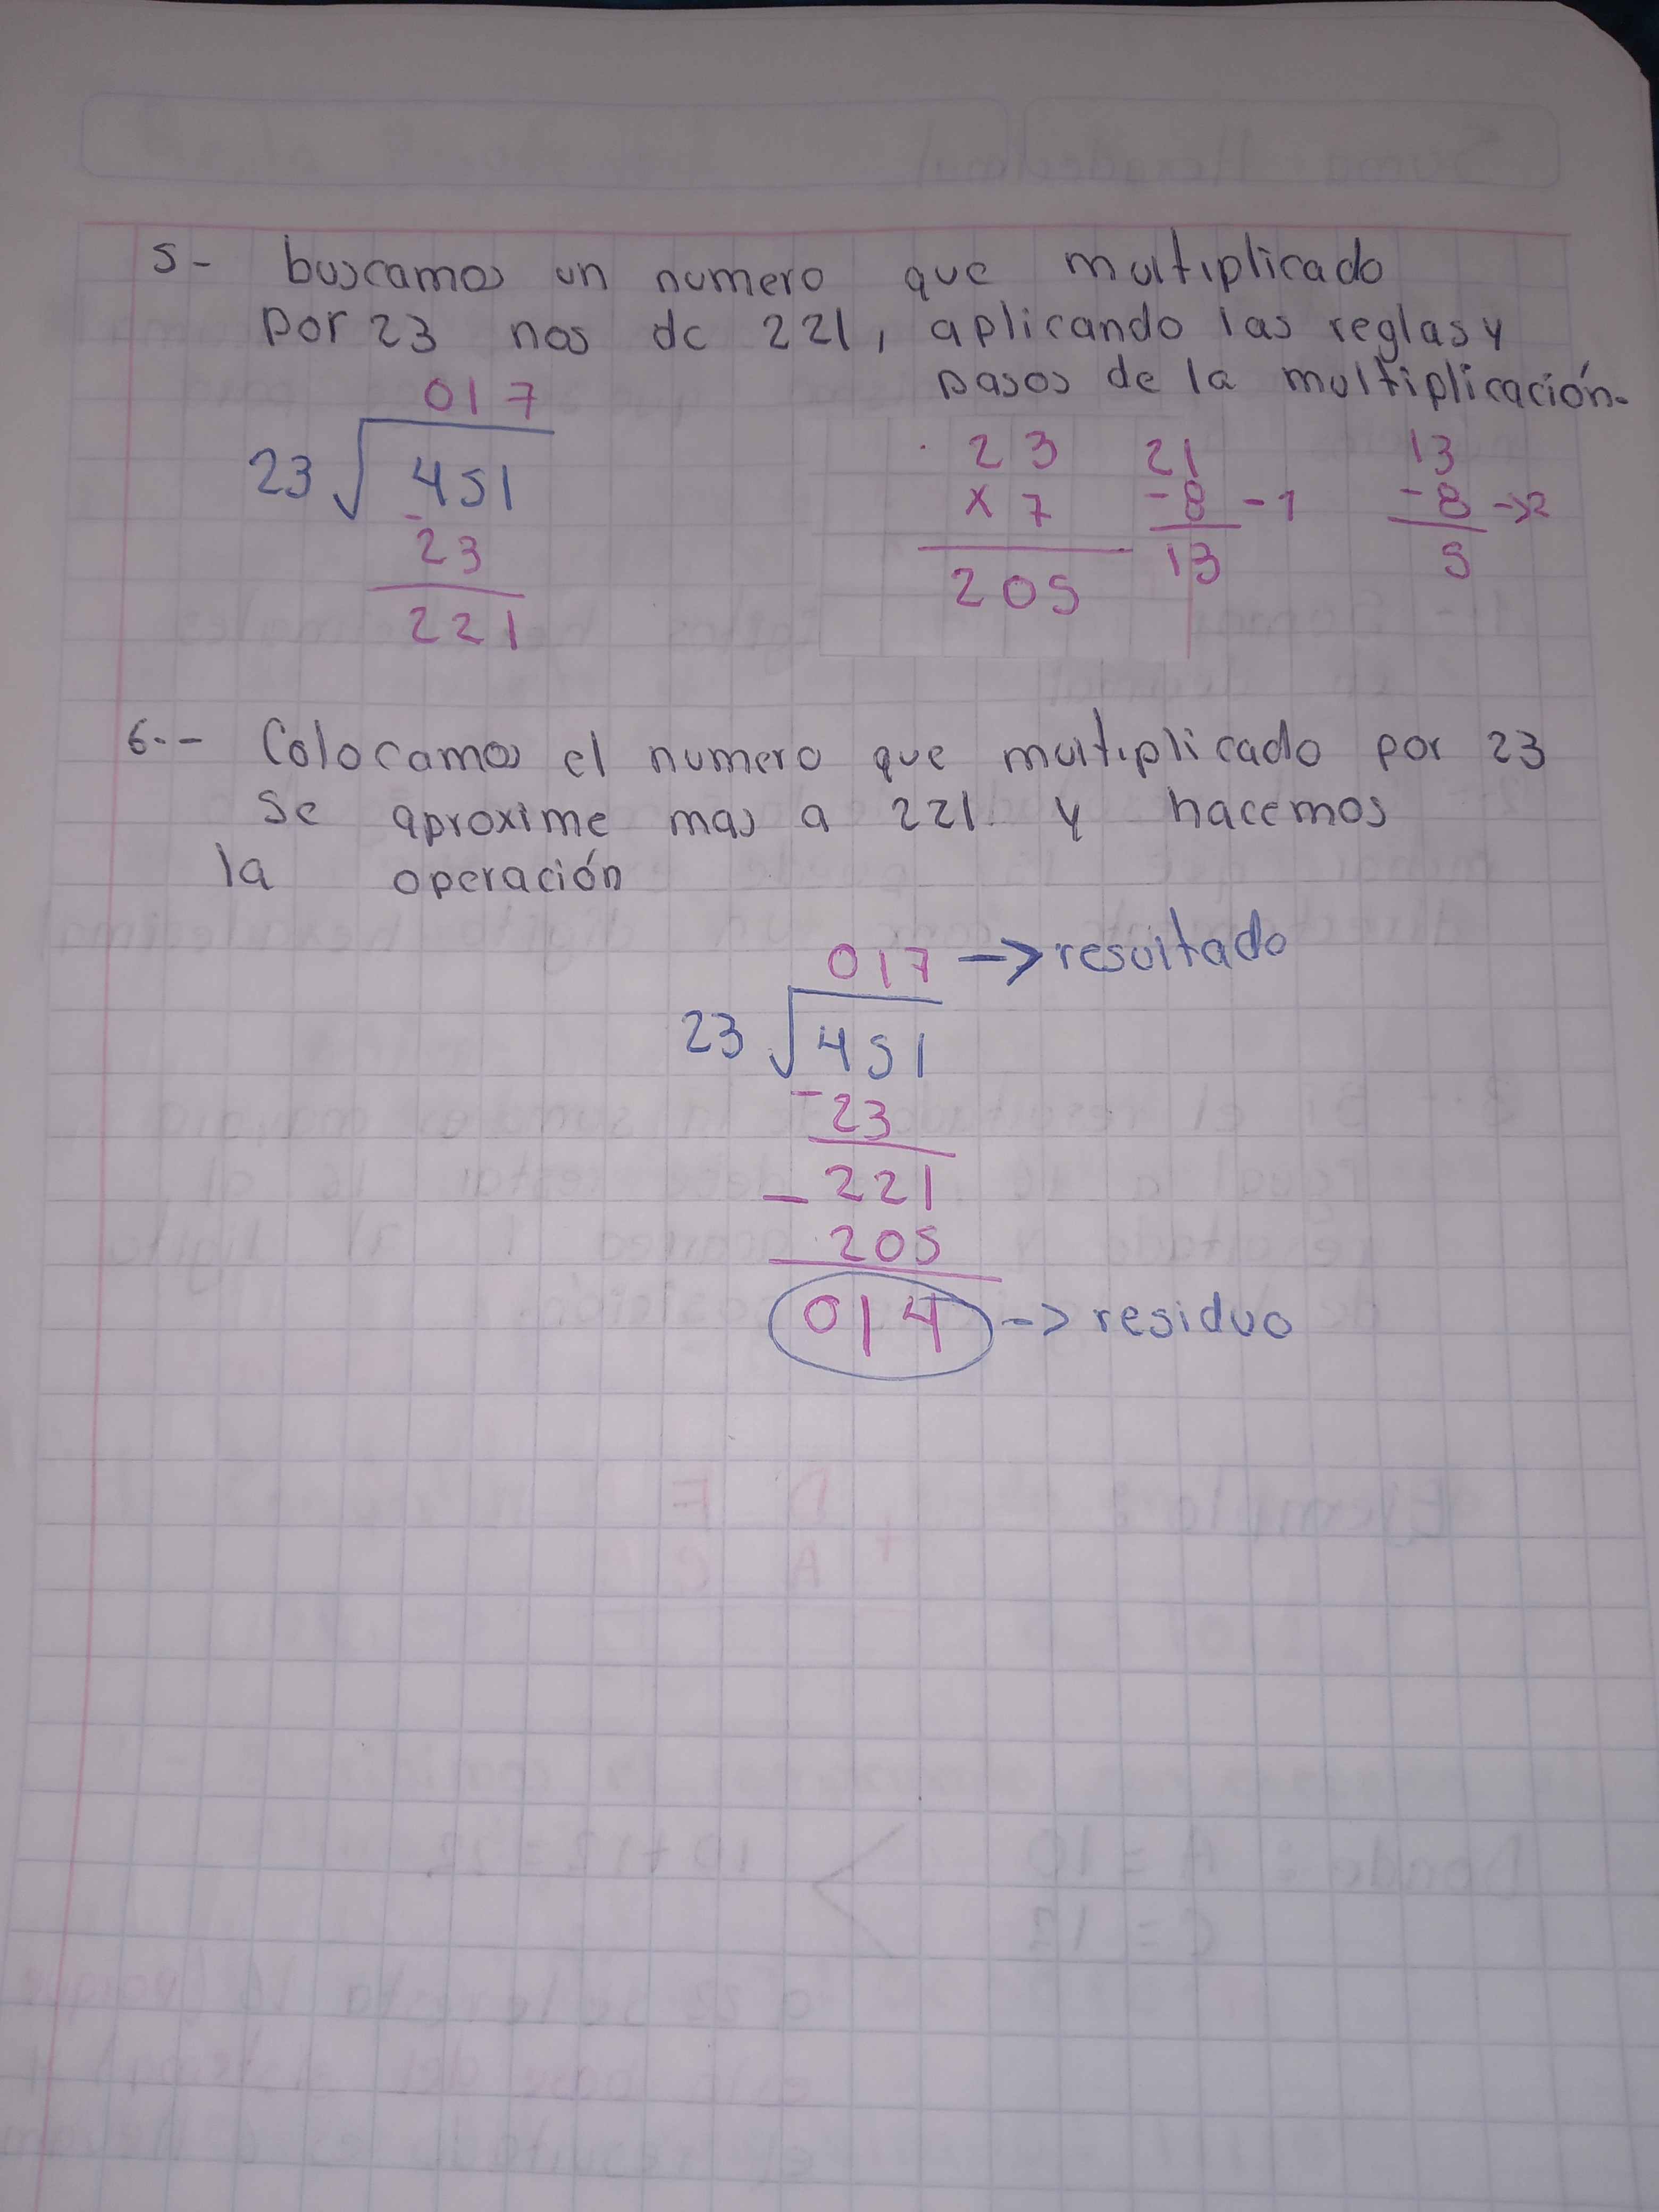 5- buscamos un numero que multiplicado
por 23 nos de 221, aplicando las reglas y
pasos de la multiplicación.
017
23 451
- 23
221
23
x 7
205
21
- 8 - 1
13
13
- 8 -> 2
5
6.- Colocamos el numero que multiplicado por 23
se aproxime mas a 221 y hacemos
la operación
017 -> resultado
23 451
- 23
- 221
205
014 -> residuo